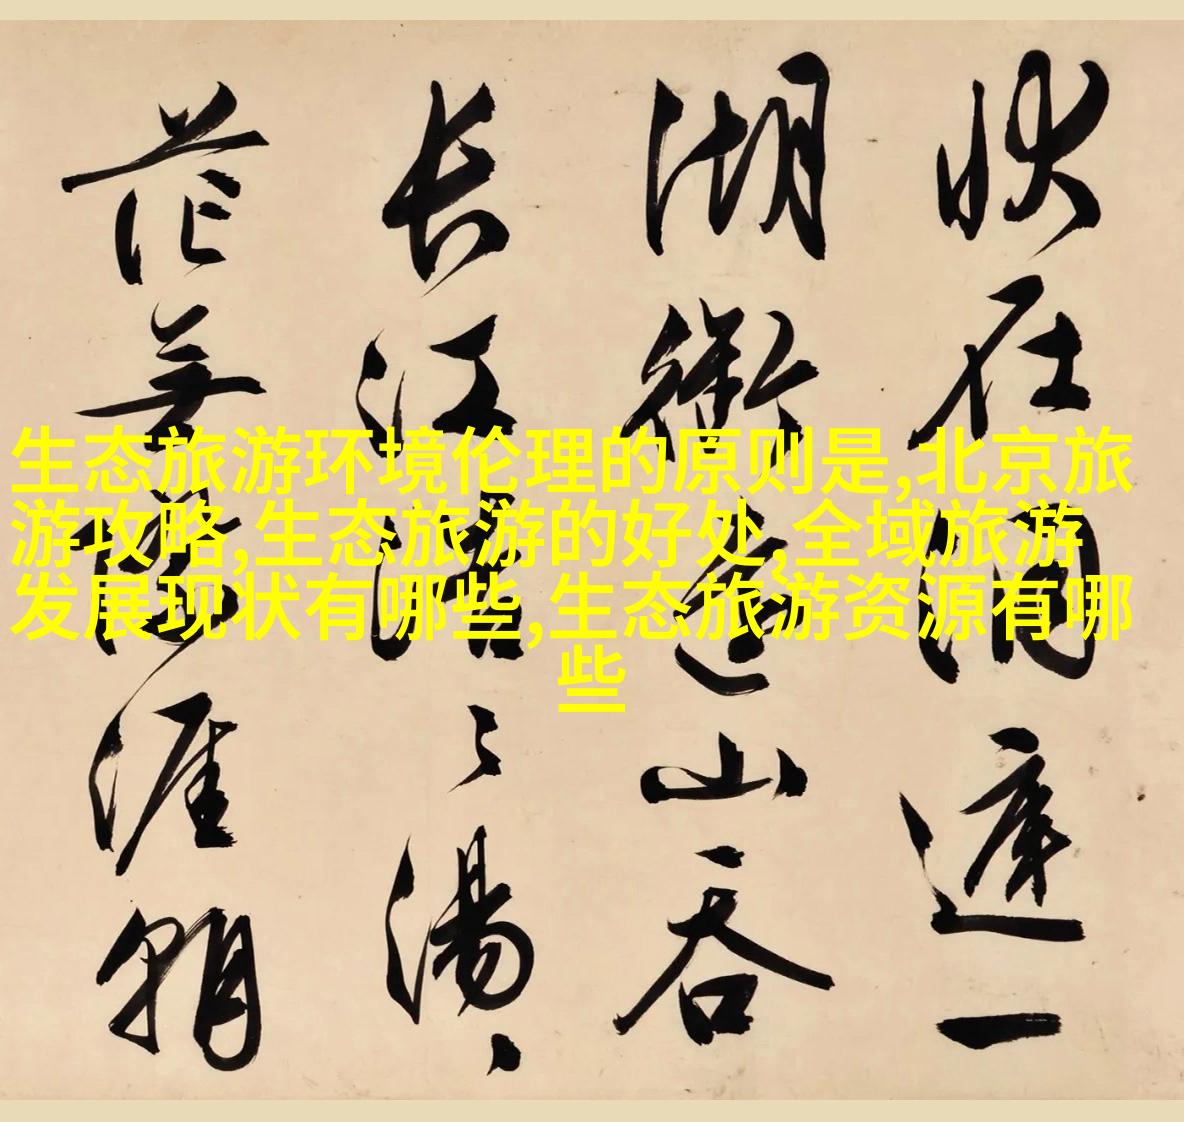 状在洞庭一
湖衔远山吞
长江浩〻湯〻
無際涯朝
生态旅游环境伦理的原则是,北京旅
游攻略,生态旅游的好处,全域旅游
发展现状有哪些,生态旅游资源有哪
些